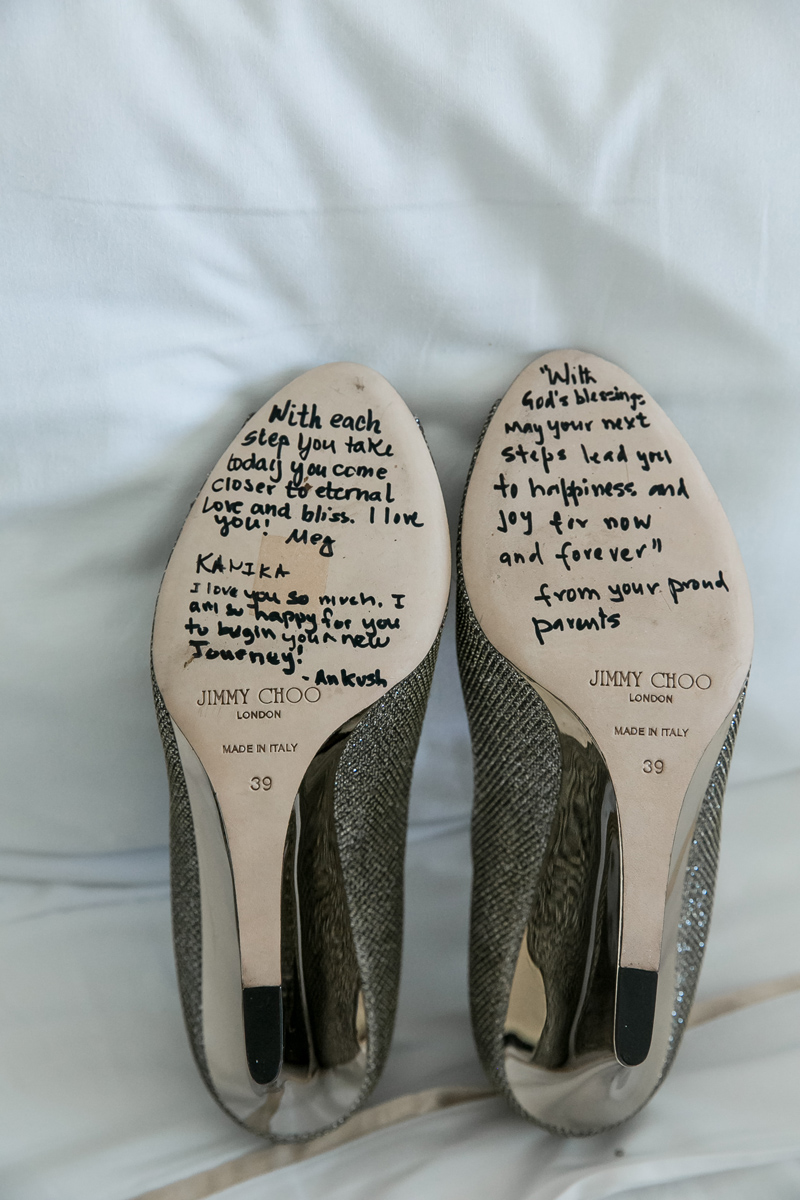 With each
step you take
today you come
closer to eternal
Love and bliss. I love
you! Meg
KANIKA
I love you so much. I
am so happy for you
to begin your new
Journey!
- Ankush
JIMMY CHOO
LONDON
MADE IN ITALY
39
"With
God's blessings
May your next
steps lead you
to happiness and
joy for now
and forever"
from your proud
parents
JIMMY CHOO
LONDON
MADE IN ITALY
39